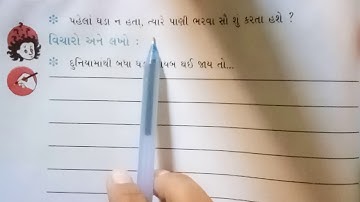 પહેલાં ઘડા ન હતા, ત્યારે પાણી ભરવા સૌ શું કરતા હશે ?
વિચારો અને લખો :
દુનિયામાંથી બધા થઈ જાય તો...